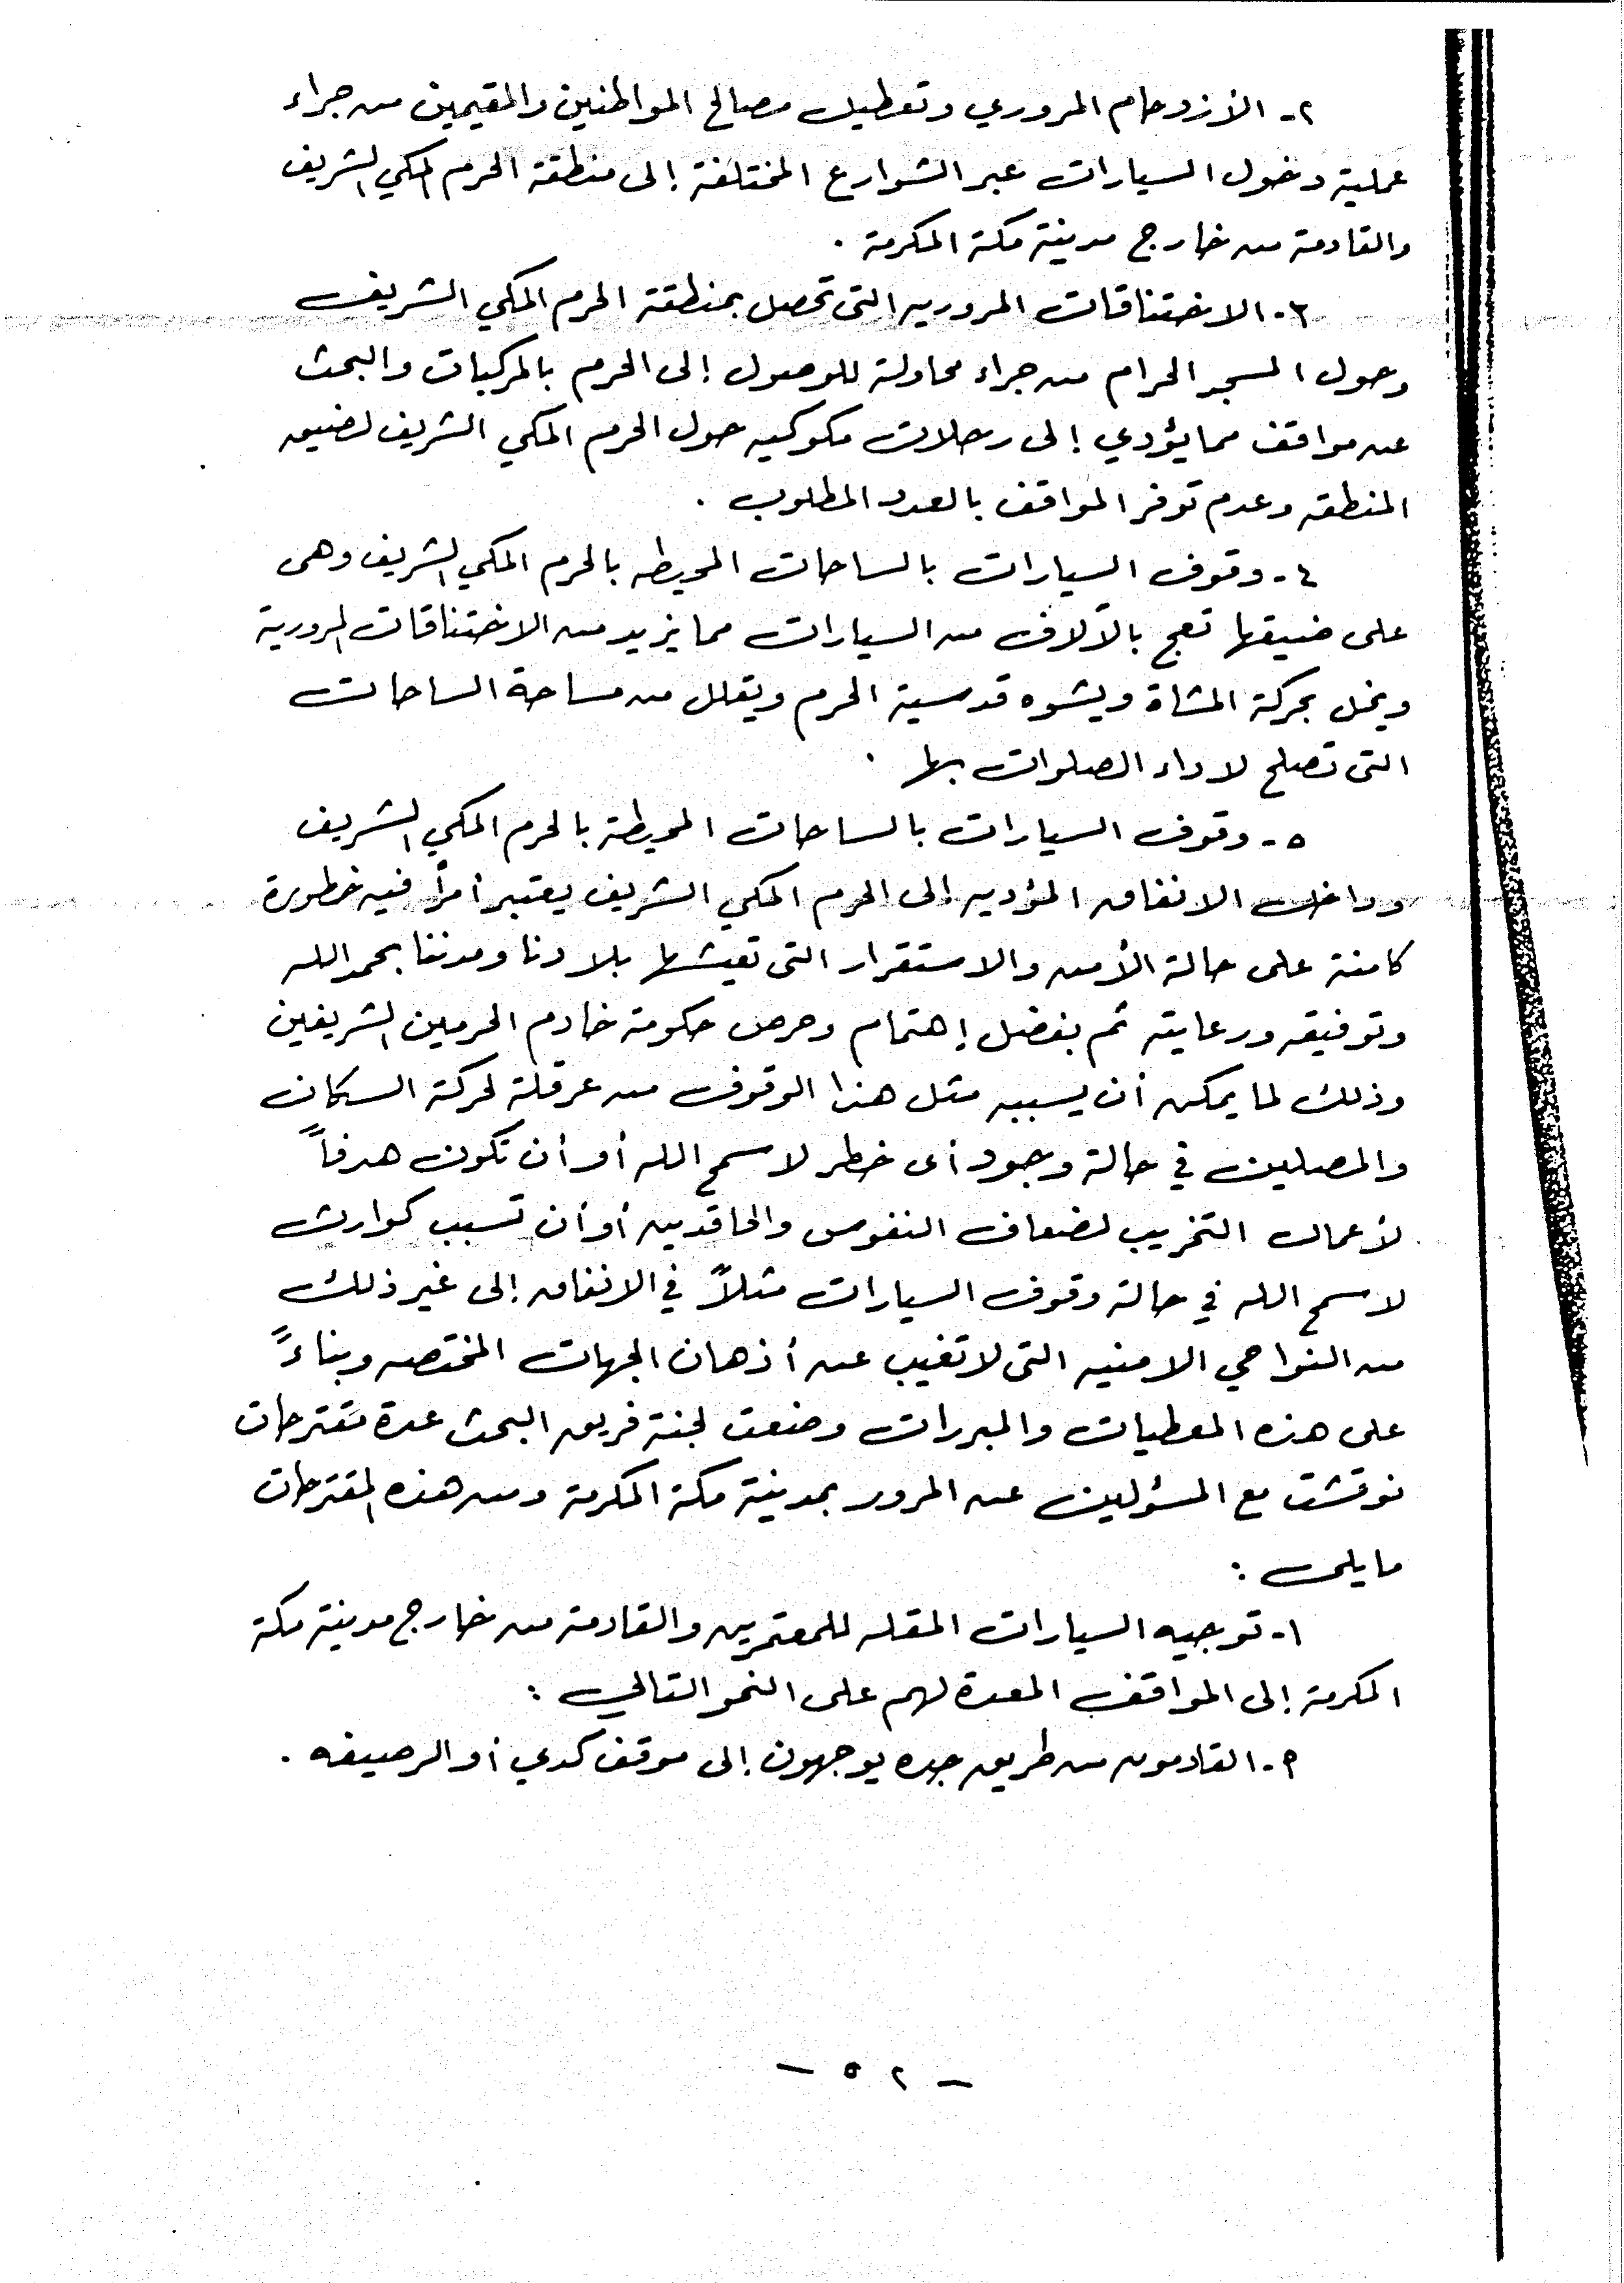 ٢- الأزدحام المروري وتعطيل مصالح المواطنين والمقيمين من جراء
عملية دخول السيارات عبر الشوارع المختلفة إلى منطقة الحرم المكي الشريف
والقادمة من خارج مدينة مكة المكرمة .
٣- الاختناقات المروريه التى تحصل بمنطقة الحرم المكي الشريف
وحول المسجد الحرام من جراء محاولة للوصول إلى الحرم بالمركبات والبحث
عن مواقف مما يؤدي إلى رحلات مكوكيه حول الحرم المكي الشريف لضيق
المنطقه وعدم توفر المواقف بالعدد المطلوب .
٤- وقوف السيارات بالساحات المحيطه بالحرم المكي الشريف وهى
على ضيقها تعج بالآلاف من السيارات مما يزيد من الاختناقات المرورية
ويخل بحركة المشاة ويشوه قدسية الحرم ويقلل من مساحة الساحات
التى تصلح لاداء الصلوات بها .
٥- وقوف السيارات بالساحات المحيطة بالحرم المكي الشريف
وداخل الانفاق المؤديه إلى الحرم المكي الشريف يعتبر أمراً فيه خطورة
كامنة على حالة الأمن والاستقرار التى تعيشها بلادنا ومدننا بحمد الله
وتوفيقه ورعايته ثم بفضل إهتمام وحرص حكومة خادم الحرمين الشريفين
وذلك لما يمكن أن يسببه مثل هذا الوقوف من عرقلة لحركة السكان
والمصلين في حالة وجود أى خطر لاسمح الله أو أن تكون هدفاً
لأعمال التخريب لضعاف النفوس والحاقدين أو أن تسبب كوارث
لاسمح الله في حالة وقوف السيارات مثلاً في الانفاق إلى غير ذلك
من النواحي الامنيه التى لاتغيب عن أذهان الجهات المختصه وبناءً
على هذه المعطيات والمبررات وضعت لجنة فريق البحث عدة مقترحات
نوقشت مع المسؤلين عن المرور بمدينة مكة المكرمة ومن هذه المقترحات
مايلى :
١- توجيه السيارات المقله للمعتمرين والقادمة من خارج مدينة مكة
المكرمة إلى المواقف المعدة لهم على النحو التالي :
٩- القادمون من طريق جده يوجهون إلى موقف كدي أو الرصيفه .
- ٥٢ -